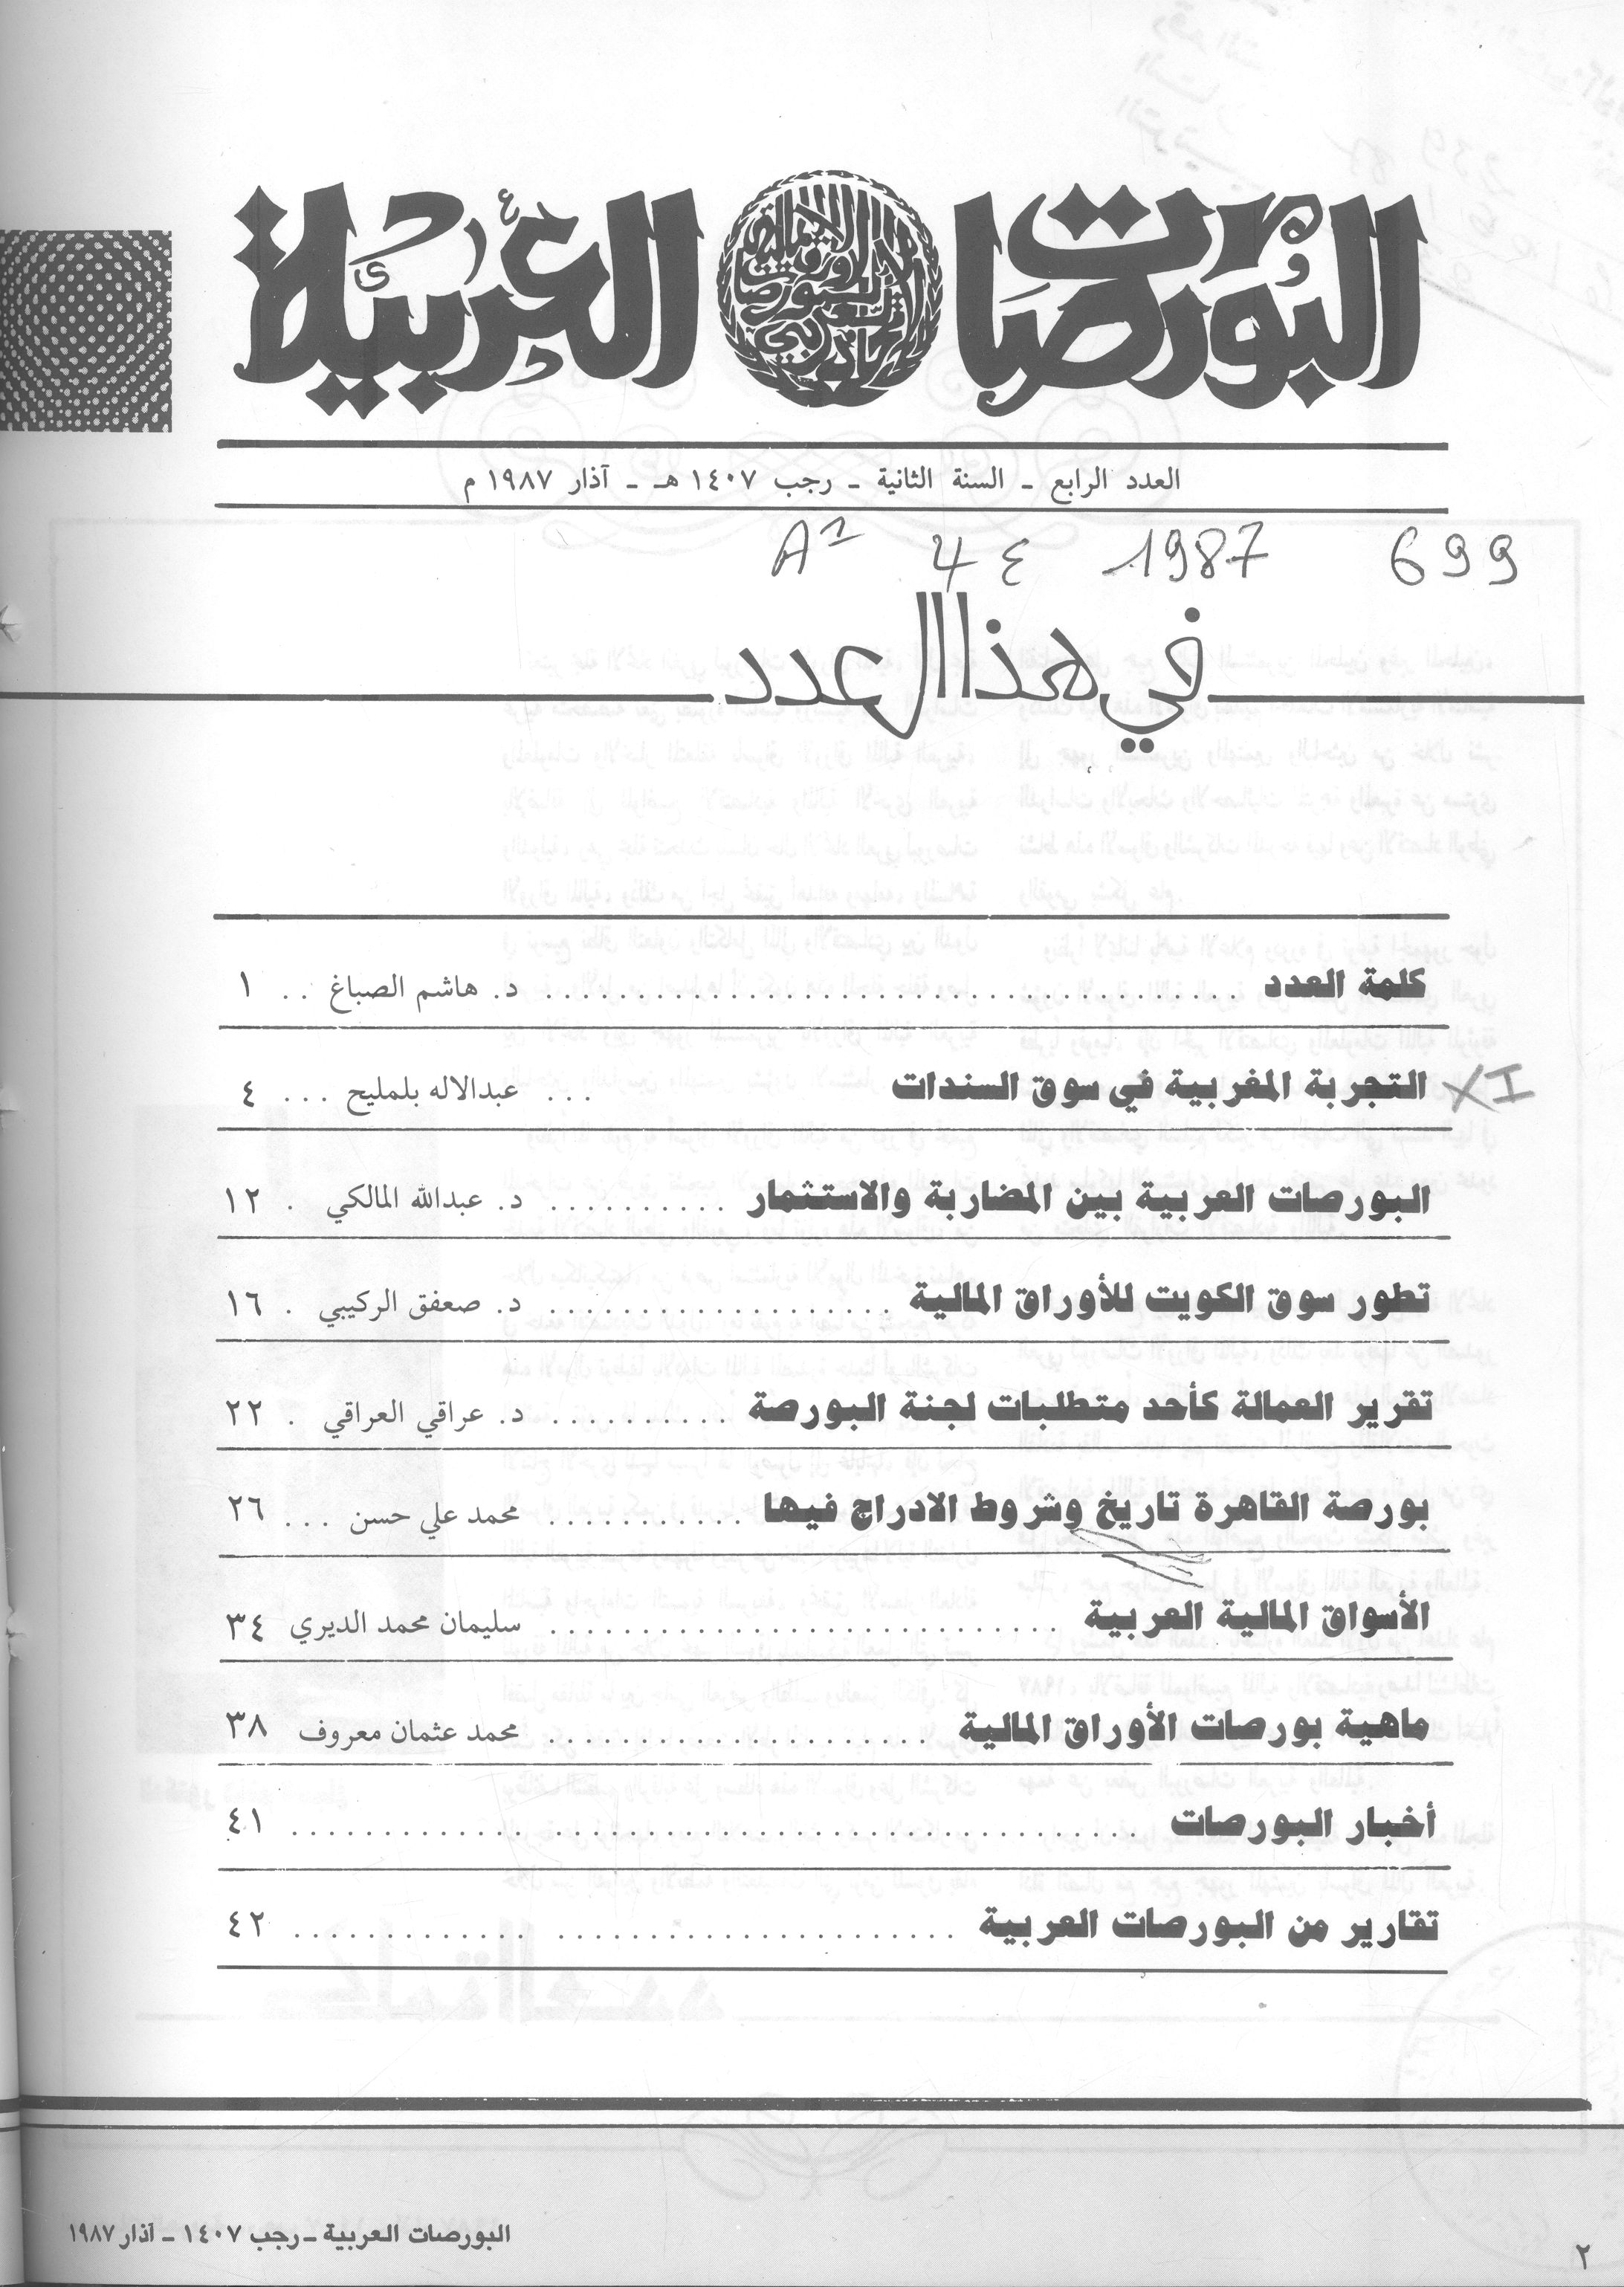 البورصات العربية
العدد الرابع ـ السنة الثانية ـ رجب ١٤٠٧ هـ ـ آذار ١٩٨٧ م
A² 4 ٤ 1987 699
في هذا العدد
كلمة العدد ........ د. هاشم الصباغ .. ١
التجربة المغربية في سوق السندات ... عبدالاله بلمليح ... ٤
البورصات العربية بين المضاربة والاستثمار .......... د. عبدالله المالكي . ١٢
تطور سوق الكويت للأوراق المالية ........ د. صعفق الركيبي . ١٦
تقرير العمالة كأحد متطلبات لجنة البورصة .......... د. عراقي العراقي . ٢٢
بورصة القاهرة تاريخ وشروط الادراج فيها .......... محمد علي حسن ... ٢٦
الأسواق المالية العربية ........ سليمان محمد الديري ٣٤
ماهية بورصات الأوراق المالية ........ محمد عثمان معروف ٣٨
أخبار البورصات ........ ٤١
تقارير من البورصات العربية ........ ٤٢
البورصات العربية ـ رجب ١٤٠٧ ـ آذار ١٩٨٧
٢